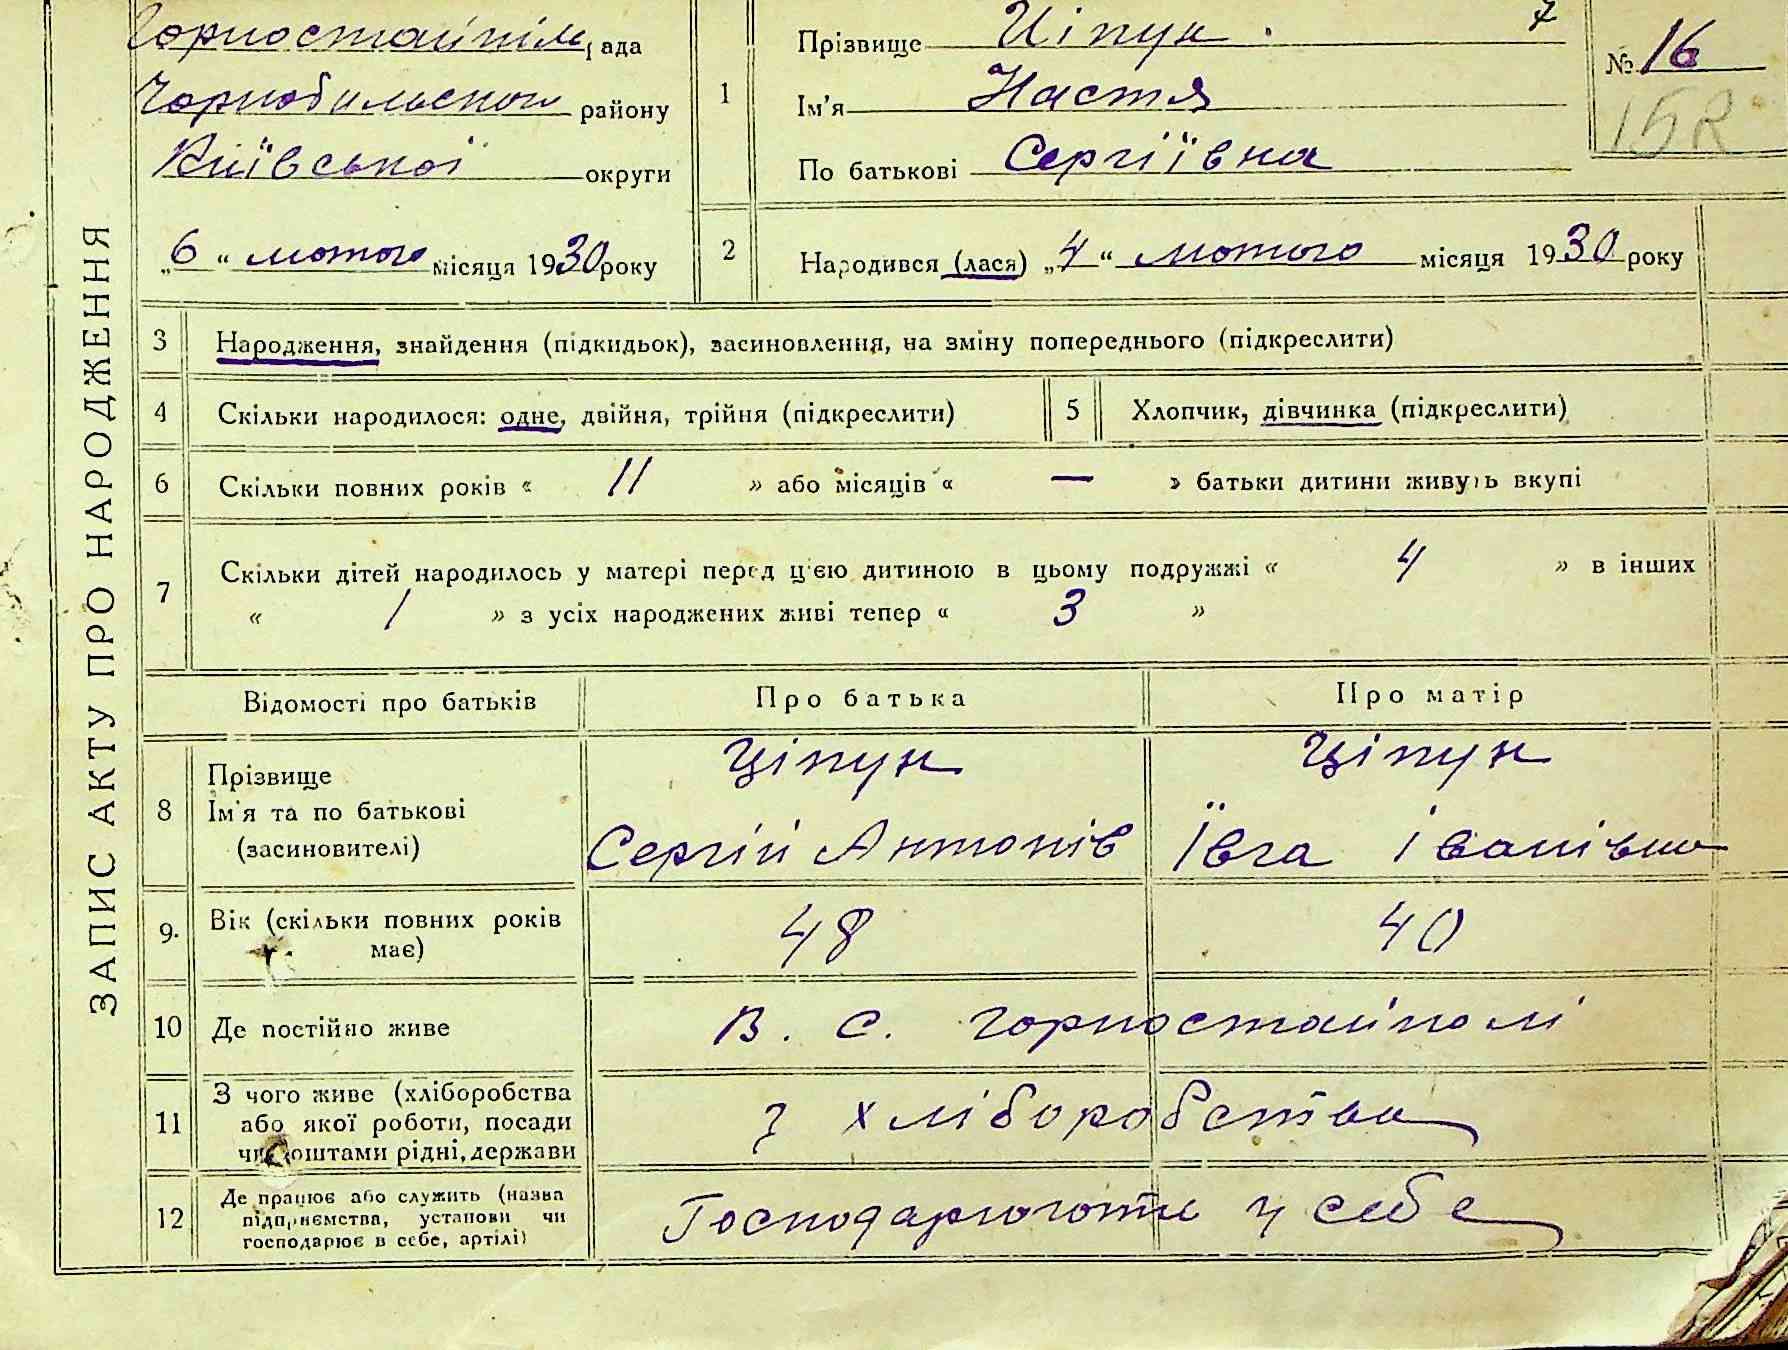 Горностайпіль рада
Чорнобильського району
Київської округи
„6“ лютого місяця 1930 року
1 Прізвище Ціпун. 7
Ім'я Настя
По батькові Сергіївна
№ 16
15
2 Народився (лася) „4“ лютого місяця 1930 року
ЗАПИС АКТУ ПРО НАРОДЖЕННЯ
3 Народження, знайдення (підкидьок), засиновлення, на зміну попереднього (підкреслити)
4 Скільки народилося: одне, двійня, трійня (підкреслити)
5 Хлопчик, дівчинка (підкреслити)
6 Скільки повних років « 11 » або місяців « — » батьки дитини живуть вкупі
7 Скільки дітей народилось у матері перед цією дитиною в цьому подружжі « 4 » в інших
« 1 » з усіх народжених живі тепер « 3 »
Відомості про батьків Про батька Про матір
8 Прізвище
Ім'я та по батькові
(засиновителі)
Ціпун
Сергій Антонів
Ціпун
Ївга Іванівна
9. Вік (скільки повних років
має)
48 40
10 Де постійно живе В. с. Горностайполі
11 З чого живе (хліборобства
або якої роботи, посади
чи коштами рідні, держави
з хліборобства
12 Де працює або служить (назва
підприємства, установи чи
господарює в себе, артілі)
Господарюють у себе